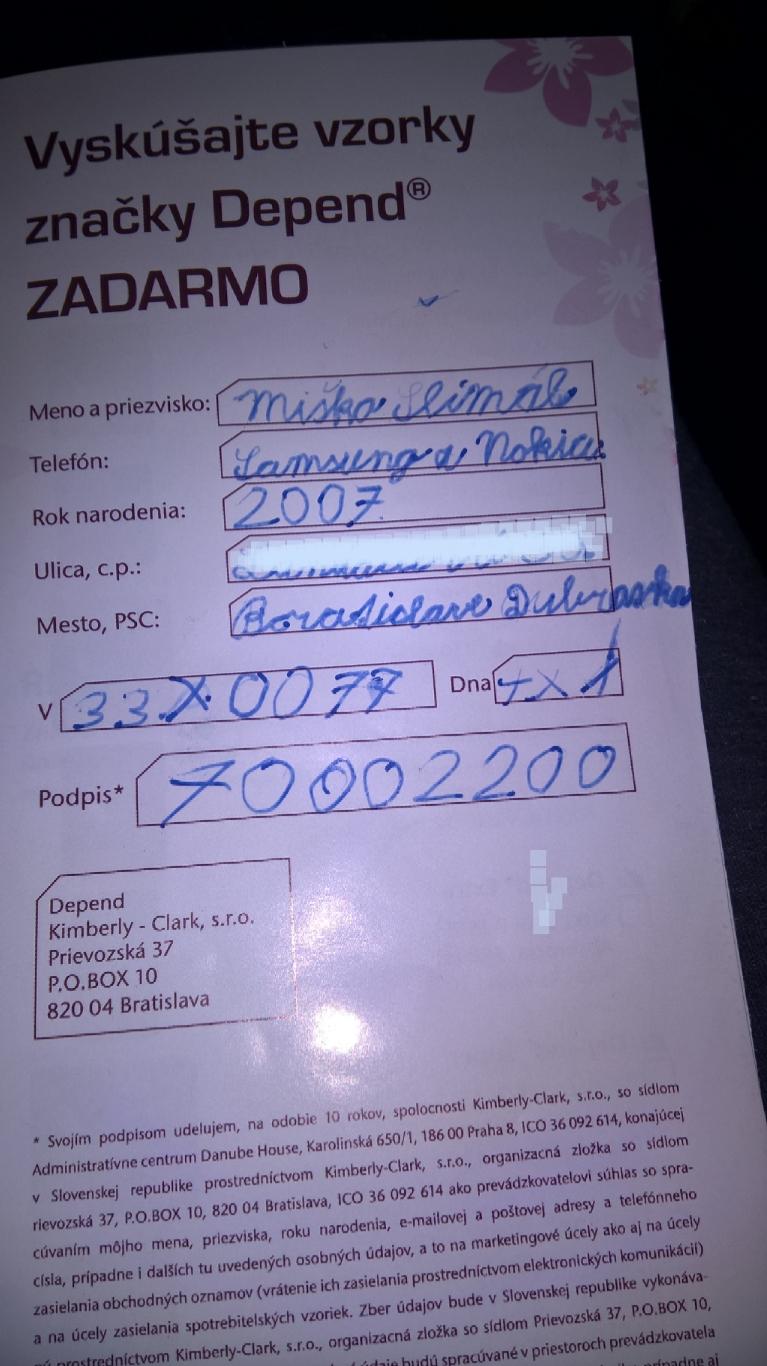 Vyskúšajte vzorky
značky Depend®
ZADARMO
Meno a priezvisko: Miško Slimák
Telefón: Samsung a Nokia
Rok narodenia: 2007
Ulica, c.p.:
Mesto, PSC: Boratislave Dubravska
V 33X0077 Dna
Podpis* 70002200
Depend
Kimberly - Clark, s.r.o.
Prievozská 37
P.O.BOX 10
820 04 Bratislava
* Svojím podpisom udelujem, na odobie 10 rokov, spolocnosti Kimberly-Clark, s.r.o., so sídlom
Administratívne centrum Danube House, Karolinská 650/1, 186 00 Praha 8, ICO 36 092 614, konajúcej
v Slovenskej republike prostredníctvom Kimberly-Clark, s.r.o., organizacná zložka so sídlom
rievozská 37, P.O.BOX 10, 820 04 Bratislava, ICO 36 092 614 ako prevádzkovatelovi súhlas so spra-
cúvaním môjho mena, priezviska, roku narodenia, e-mailovej a poštovej adresy a telefónneho
císla, prípadne i dalších tu uvedených osobných údajov, a to na marketingové úcely ako aj na úcely
zasielania obchodných oznamov (vrátenie ich zasielania prostredníctvom elektronických komunikácií)
a na úcely zasielania spotrebitelských vzoriek. Zber údajov bude v Slovenskej republike vykonáva-
prostredníctvom Kimberly-Clark, s.r.o., organizacná zložka so sídlom Prievozská 37, P.O.BOX 10,
budú spracúvané v priestoroch prevádzkovatela